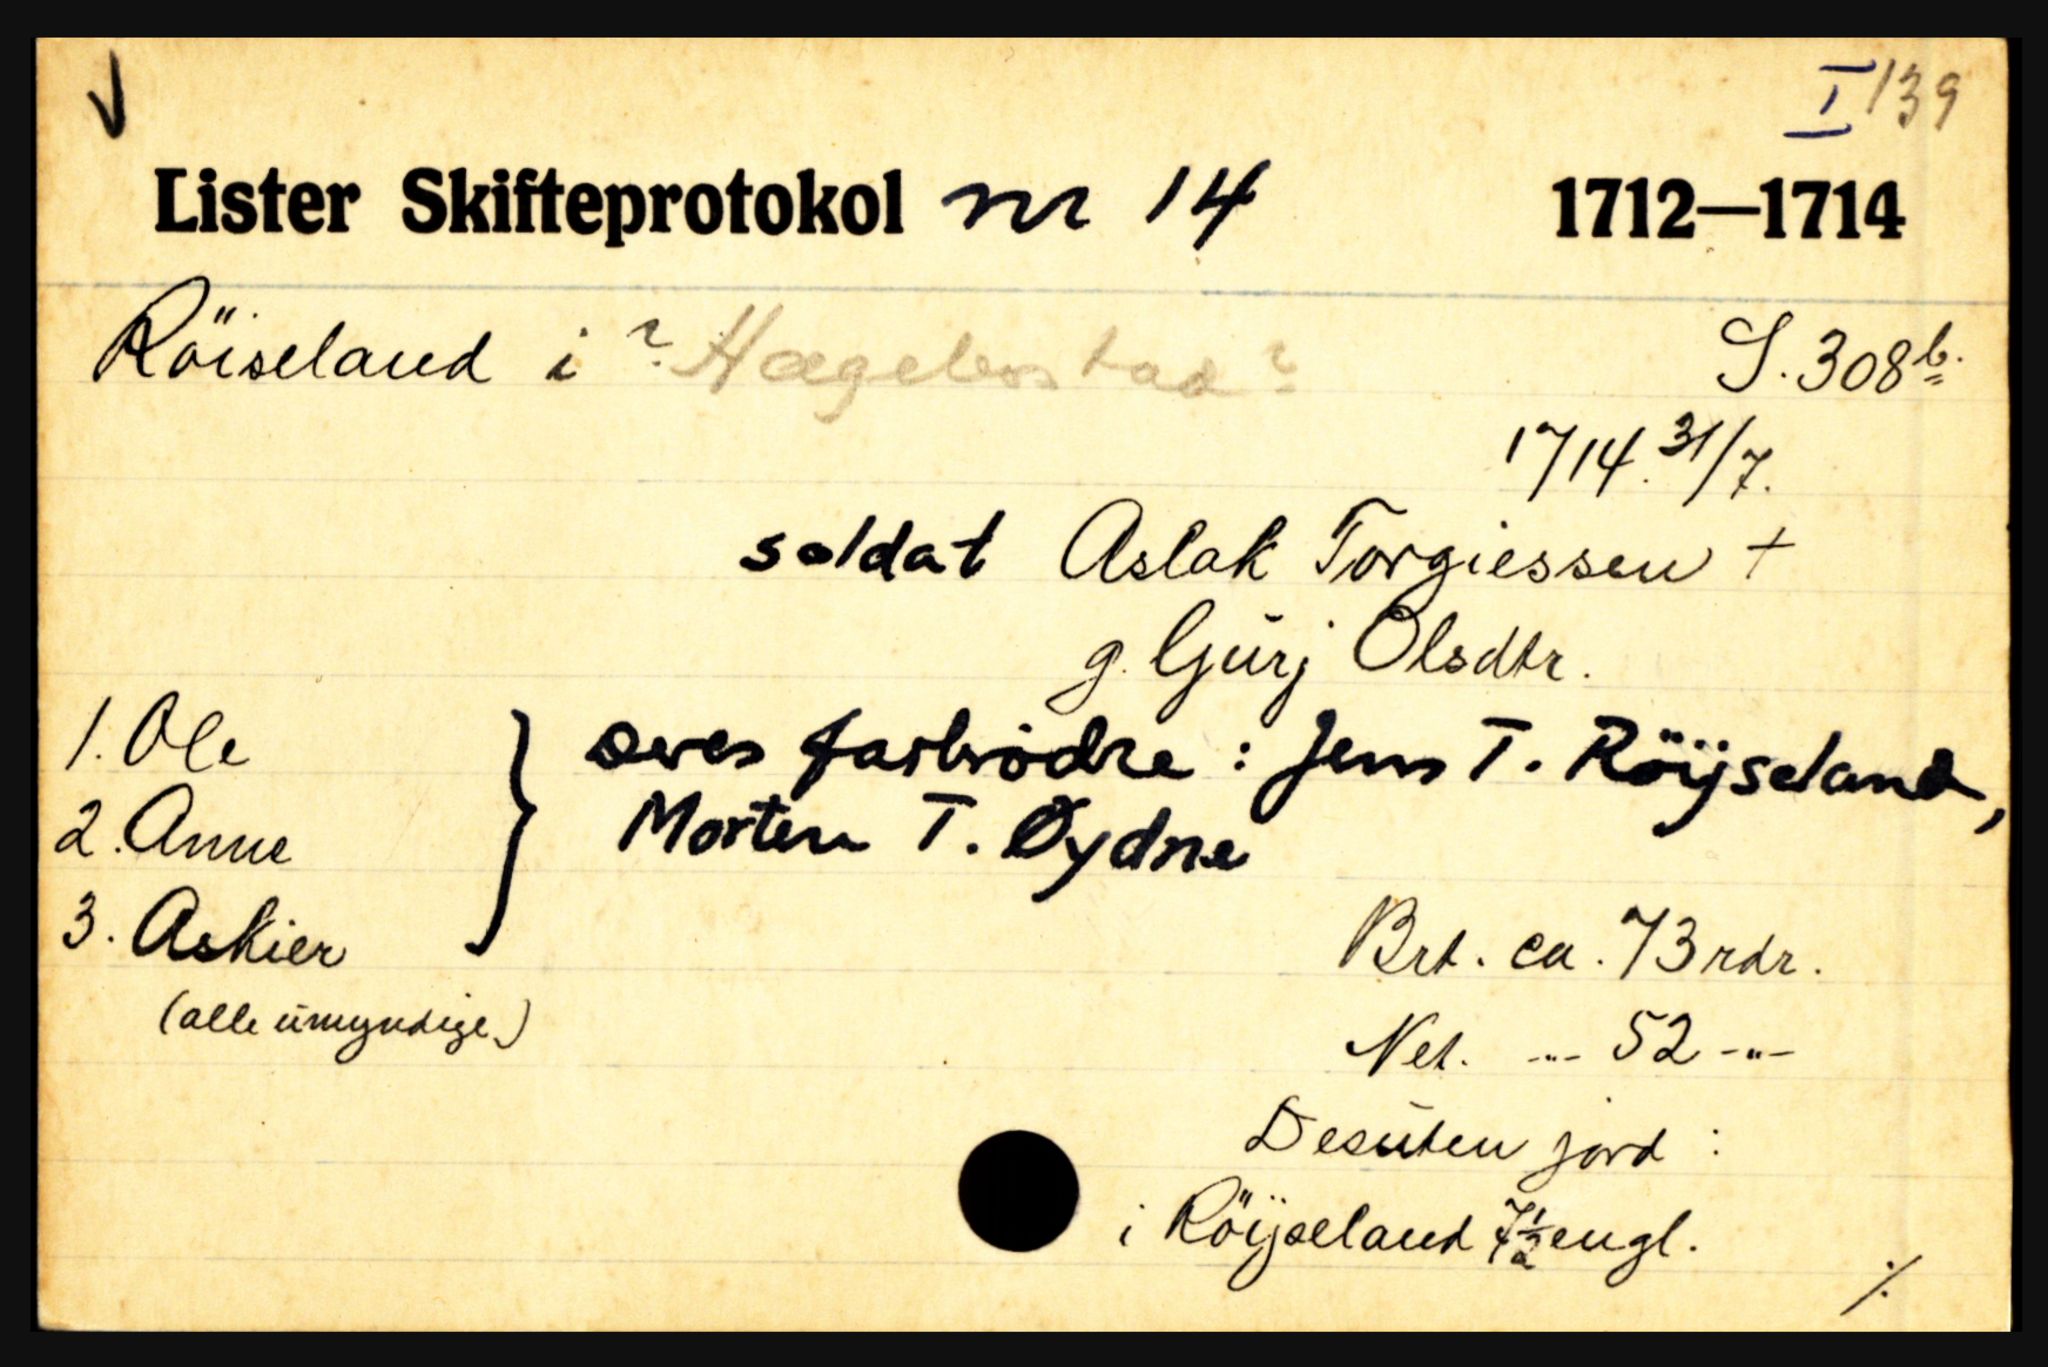 I 139
Lister Skifteprotokol nr 14 1712—1714
Röiseland i ? Hægebostad ? S. 308 b.
1714. 31/7.
soldat Aslak Torgiessen +
g. Gurj Olsdtr.
1. Ole
2. Anne
3. Askier
(alle umyndige)
} deres farbrödre : Jens T. Röijseland,
Morten T. Øydne
Brt. ca. 73 rdr.
Net. -"- 52 -"-
Desuten jord :
i Röijseland 7½ engl.
./.